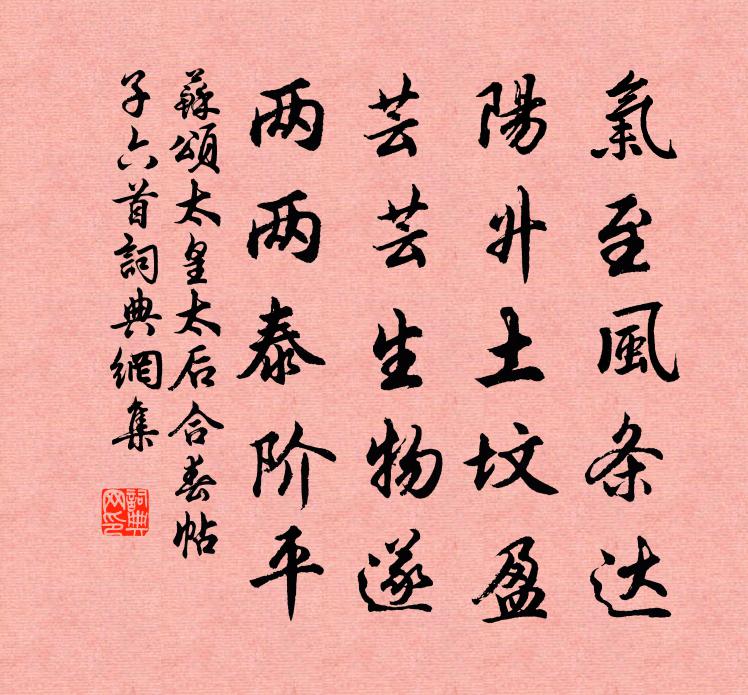 氣至風条达
陽升土坟盈
芸芸生物遂
两两泰阶平
蘇頌太皇太后合春帖
子六首詞典網集
詞典网印